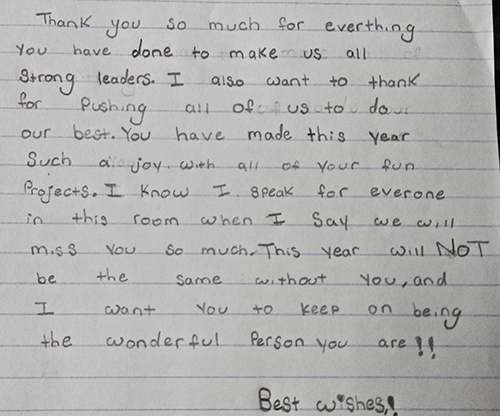 Thank you so much for everthing
you have done to make us all
strong leaders. I also want to thank
for pushing all of us to do
our best. You have made this year
Such a joy with all of your fun
Projects. I know I speak for everone
in this room when I say we will
miss you so much. This year will NOT
be the same without you, and
I want you to keep on being
the wonderful person you are!!
Best wishes,!